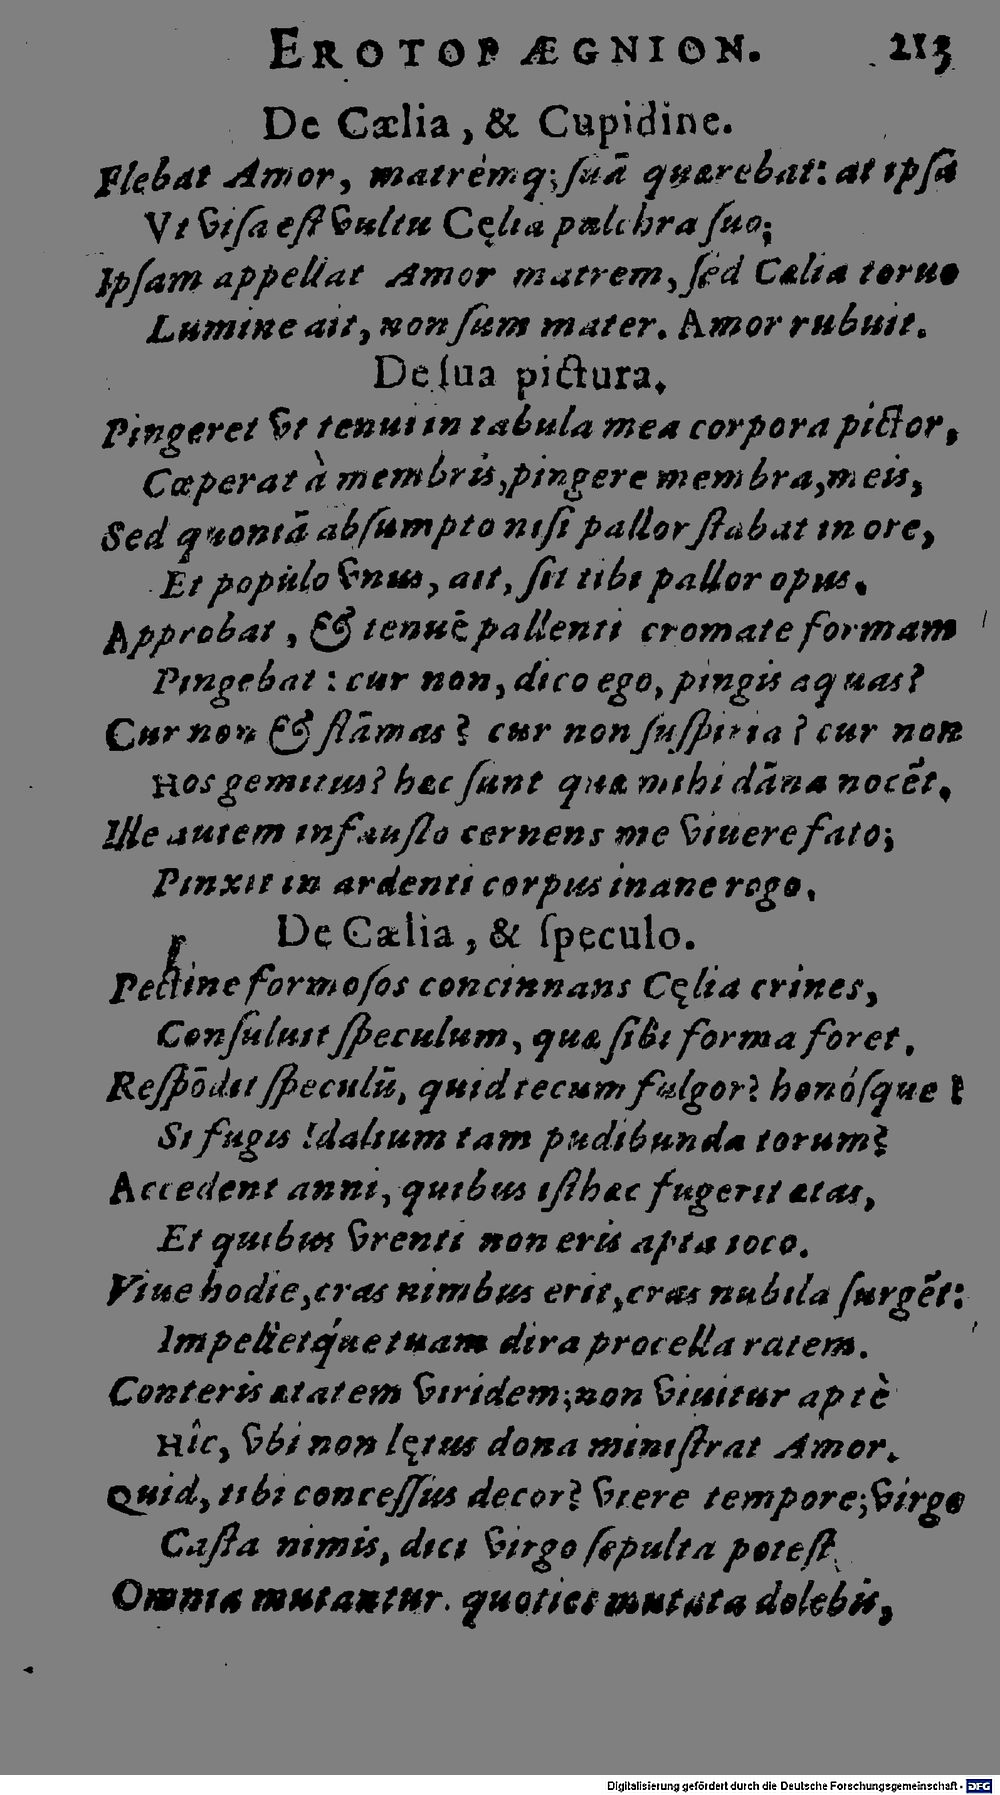 EROTOPÆGNION. 213
De Cælia, & Cupidine.
Flebat Amor, matrémq; ſuā quærebat: at ipſa
Vt viſa eſt vultu Cęlia pulchra ſuo;
Ipſam appellat Amor matrem, ſed Cælia toruo
Lumine ait, non ſum mater. Amor rubuit.
De ſua pictura.
Pingeret vt tenui in tabula mea corpora pictor,
Cœperat à membris, pingere membra, meis,
Sed quoniā abſumpto niſi pallor ſtabat in ore,
Et populo vnus, ait, ſit tibi pallor opus.
Approbat, & tenuē pallenti cromate formam
Pingebat: cur non, dico ego, pingis aquas?
Cur non & flāmas? cur non ſuſpiria? cur non
Hos gemitus? hæc ſunt quæ mihi dāna nocēt.
Ille autem infauſto cernens me viuere fato;
Pinxit in ardenti corpus inane rogo.
De Cælia, & ſpeculo.
Pectine formoſos concinnans Cęlia crines,
Conſuluit ſpeculum, quæ ſibi forma foret.
Reſpōdit ſpeculū, quid tecum fulgor? honóſque?
Si fugis Idalium tam pudibunda torum?
Accedent anni, quibus iſthæc fugerit ætas,
Et quibus vrenti non eris apta ioco.
Viue hodie, cras nimbus erit, cras nubila ſurgēt:
Impelletq́ue tuam dira procella ratem.
Conteris ætatem viridem; non viuitur aptè
Hîc, vbi non lętus dona miniſtrat Amor.
Quid, tibi conceſſus decor? vtere tempore; virgo
Caſta nimis, dici virgo ſepulta poteſt
Omnia mutantur. quoties mutata dolebis,
Digitalisierung gefördert durch die Deutsche Forschungsgemeinschaft - DFG